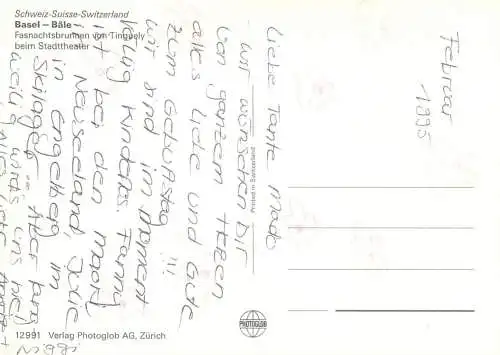 Schweiz-Suisse-Switzerland
Basel – Bâle
Fasnachtsbrunnen von Tinguely
beim Stadttheater
Februar
1995
Liebe Tante Mado
wir wünschen Dir
von ganzem Herzen
alles Liebe und Gute
zum Geburtstag !!!
wir sind im moment
völlig kinderlos. Fanny
ist bei den Maori,
Neuseeland, Julie
in Engelberg im
Skilager. Aber lang-
weilig wird's uns nei
Alles Liebe
Printed in Switzerland
PHOTOGLOB
12991 Verlag Photoglob AG, Zürich